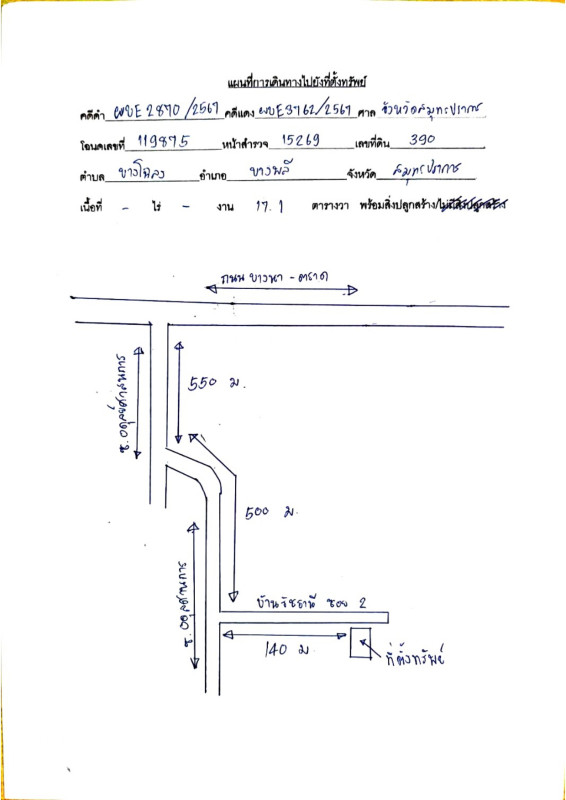 แผนที่การเดินทางไปยังที่ตั้งทรัพย์
คดีดำ ผบE2870/2567 คดีแดง ผบE3762/2567 ศาล จังหวัดสมุทรปราการ
โฉนดเลขที่ 119875 หน้าสำรวจ 15269 เลขที่ดิน 390
ตำบล บางโฉลง อำเภอ บางพลี จังหวัด สมุทรปราการ
เนื้อที่ - ไร่ - งาน 17.1 ตารางวา พร้อมสิ่งปลูกสร้าง/ไม่มีสิ่งปลูกสร้าง
ถนน บางนา - ตราด
550 ม.
500 ม.
บ้านรัชธานี ซอย 2
140 ม
ที่ตั้งทรัพย์